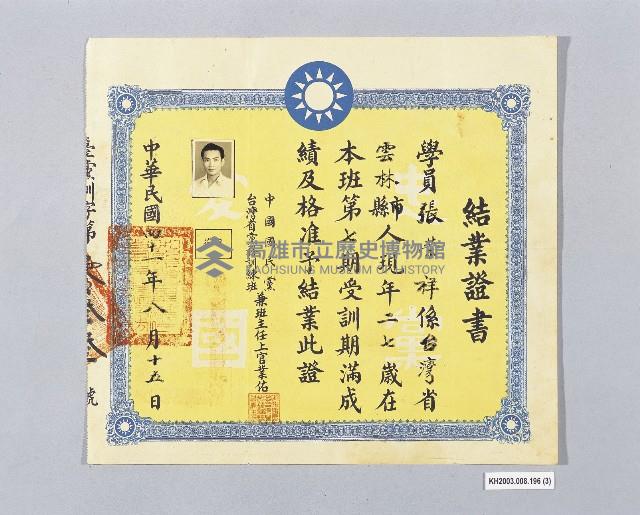 結業證書
學員張 祥係台灣省
雲林縣市人現年二七歲在
本班第七期受訓期滿成
績及格准予結業此證
中國國民黨
台灣省黨訓練班
兼班主任上官業佑
中華民國四十一年八月十五日
號
忠黨
愛國
高雄市立歷史博物館
KAOHSIUNG MUSEUM OF HISTORY
KH2003.008.196 (3)